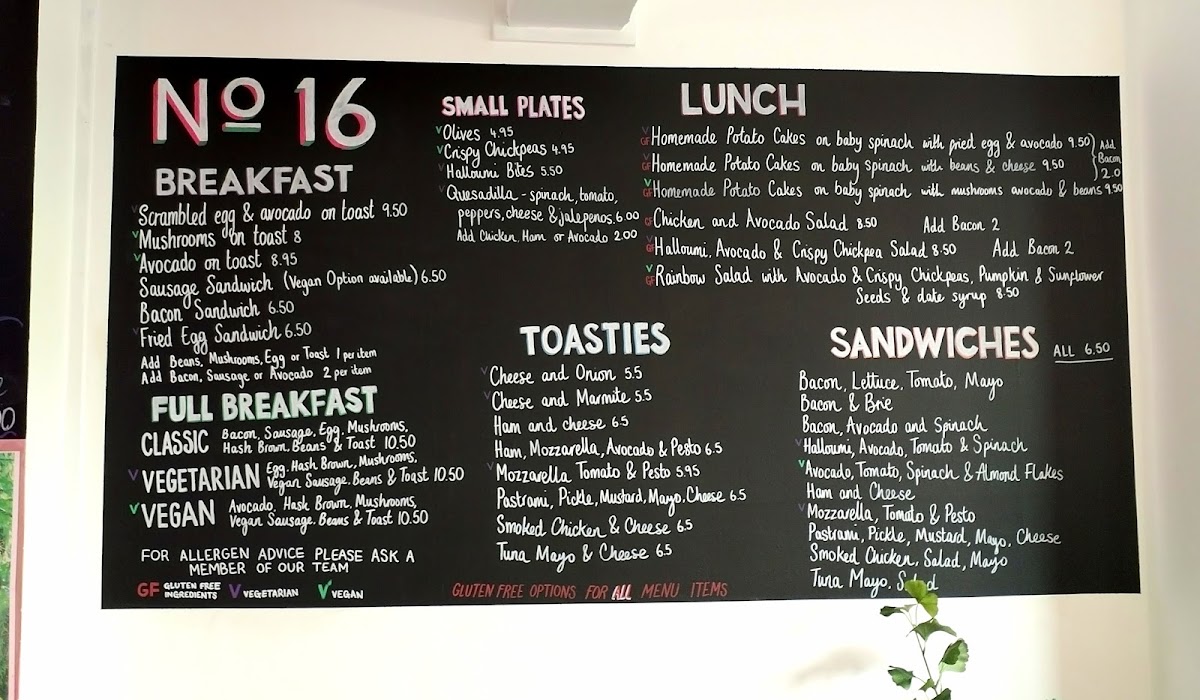 No 16
BREAKFAST
Scrambled egg & avocado on toast 9.50
Mushrooms on toast 8
Avocado on toast 8.95
Sausage Sandwich (Vegan Option available) 6.50
Bacon Sandwich 6.50
V Fried Egg Sandwich 6.50
Add Beans, Mushrooms, Egg or Toast 1 per item
Add Bacon, Sausage or Avocado 2 per item
FULL BREAKFAST
CLASSIC Bacon, Sausage, Egg, Mushrooms,
Hash Brown, Beans & Toast 10.50
V VEGETARIAN Egg, Hash Brown, Mushrooms,
Vegan Sausage, Beans & Toast 10.50
V VEGAN Avocado, Hash Brown, Mushrooms,
Vegan Sausage, Beans & Toast 10.50
FOR ALLERGEN ADVICE PLEASE ASK A
MEMBER OF OUR TEAM
GF GLUTEN FREE
INGREDIENTS
V VEGETARIAN
V VEGAN
SMALL PLATES
V Olives 4.95
V Crispy Chickpeas 4.95
V Halloumi Bites 5.50
V Quesadilla - spinach, tomato,
peppers, cheese & jalepenos. 6.00
Add Chicken, Ham or Avocado 2.00
LUNCH
V GF Homemade Potato Cakes on baby spinach with fried egg & avocado 9.50
V GF Homemade Potato Cakes on baby spinach with beans & cheese 9.50
V GF Homemade Potato Cakes on baby spinach with mushrooms avocado & beans 9.50
Add
Bacon
2.0
GF Chicken and Avocado Salad 8.50 Add Bacon 2
V GF Halloumi, Avocado & Crispy Chickpea Salad 8.50 Add Bacon 2
V GF Rainbow Salad with Avocado & Crispy Chickpeas, Pumpkin & Sunflower
Seeds & date syrup 8.50
TOASTIES
V Cheese and Onion 5.5
V Cheese and Marmite 5.5
Ham and cheese 6.5
Ham, Mozzarella, Avocado & Pesto 6.5
V Mozzarella Tomato & Pesto 5.95
Pastrami, Pickle, Mustard, Mayo, Cheese 6.5
Smoked Chicken & Cheese 6.5
Tuna Mayo & Cheese 6.5
GLUTEN FREE OPTIONS FOR ALL MENU ITEMS
SANDWICHES ALL 6.50
Bacon, Lettuce, Tomato, Mayo
Bacon & Brie
Bacon, Avocado and Spinach
V Halloumi, Avocado, Tomato & Spinach
V Avocado, Tomato, Spinach & Almond Flakes
Ham and Cheese
V Mozzarella, Tomato & Pesto
Pastrami, Pickle, Mustard, Mayo, Cheese
Smoked Chicken, Salad, Mayo
Tuna Mayo,